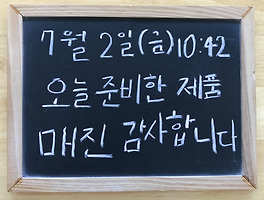 7월 2일(금)10:42
오늘 준비한 제품
매진 감사합니다